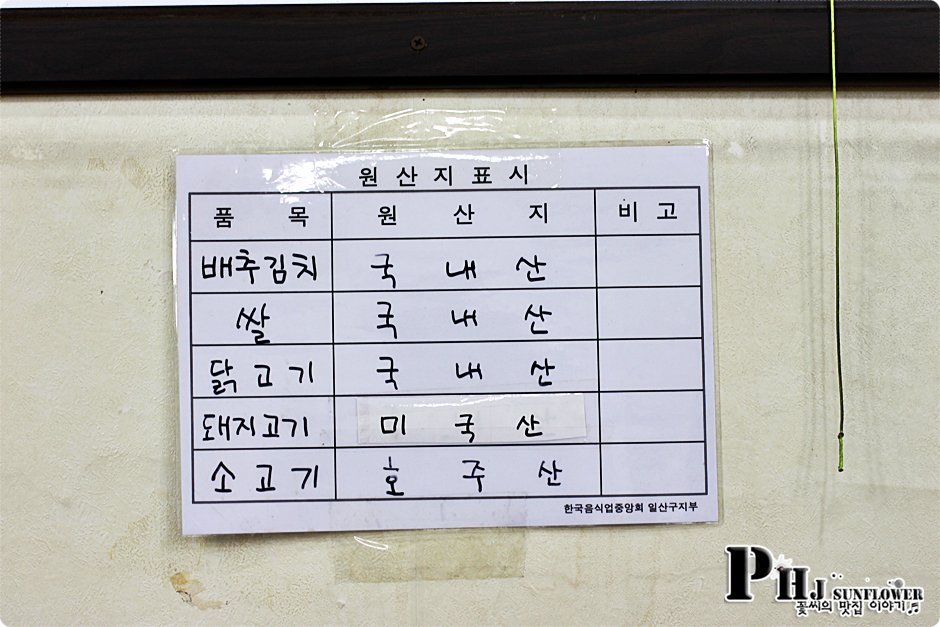 원 산 지 표 시
품 목 원 산 지 비 고
배추김치 국 내 산
쌀 국 내 산
닭 고 기 국 내 산
돼지고기 미 국 산
소 고 기 호 주 산
한국음식업중앙회 일산구지부
PHJ SUNFLOWER
꽃씨의 맛집 이야기♬